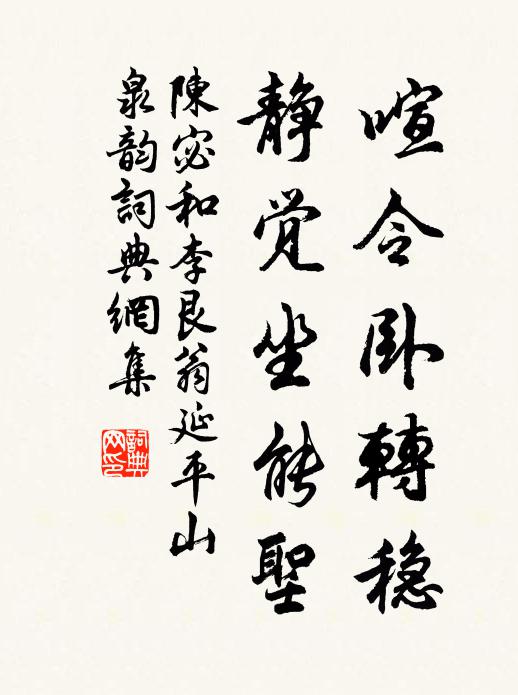 喧令卧轉穏
静覚坐能聖
陳宓和李艮翁延平山
泉韵詞典網集
詞典网印